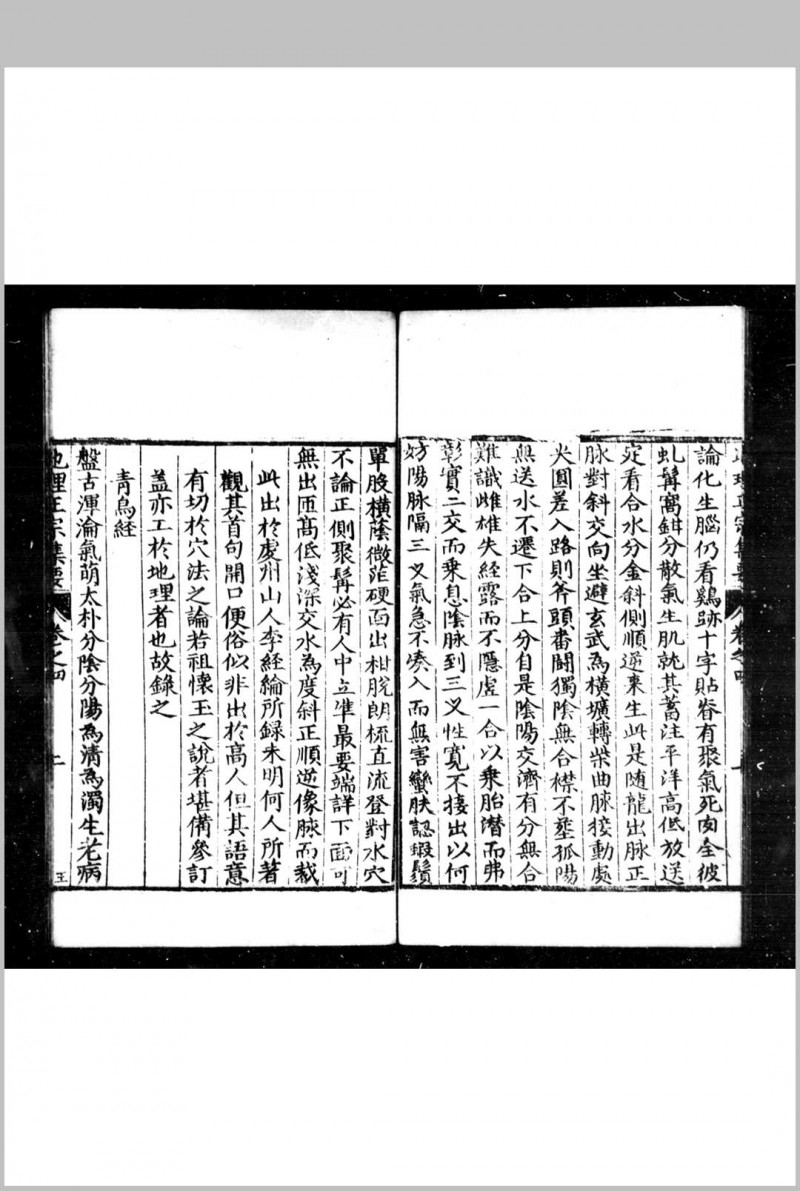 地理正宗集要 卷之四 一
論化生腦仍看鷄跡十字貼脊有聚氣死肉全彼
虬髯窩鉗分散氣生肌就其蓄注平洋高低放送
定看合水分金斜側順逆來生此是随龍出脉正
脉對斜交向坐避玄武為橫壙轉柴曲脉接動處
尖圓差入路則斧頭番鬪獨陰無合襟不塟孤陽
無送水不遷下合上分自是陰陽交濟有分無合
難識雌雄失經露而不隱虛一合以乘胎潛而弗
彰實二交而乗息陰脉到三叉性寬不接出以何
妨陽脉隔三叉氣急不湊入而無害蠻肤認蝦鬚
單股橫蔭微茫硬面出柑脫朗梳直流登對水穴
不論正側聚髯必有人中立準最要端詳下面可
無出匝髙低淺深交水為度斜正順逆像脉而裁
此出於處州山人李經綸所録未明何人所著
觀其首句開口便俗似非出於高人但其語意
有切於穴法之論若祖懷玉之說者堪備參訂
盖亦工於地理者也故錄之
青烏經
盤古渾淪氣萌太朴分陰分陽為清為濁生老病
地理正宗集要 卷之四 二 王